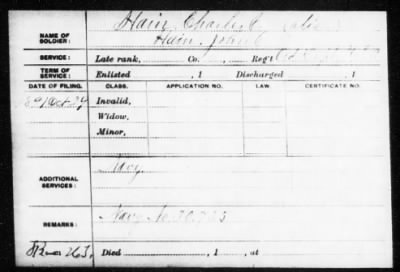 Hain, Charles
NAME OF SOLDIER: Hain, John
SERVICE: Late rank, Co. Reg't
TERM OF SERVICE: Enlisted , 1 Discharged , 1
DATE OF FILING. CLASS. APPLICATION NO. LAW CERTIFICATE NO.
Oct Invalid,
Widow,
Minor,
ADDITIONAL SERVICES: Navy.
REMARKS: Navy No.
Died , 1 , at